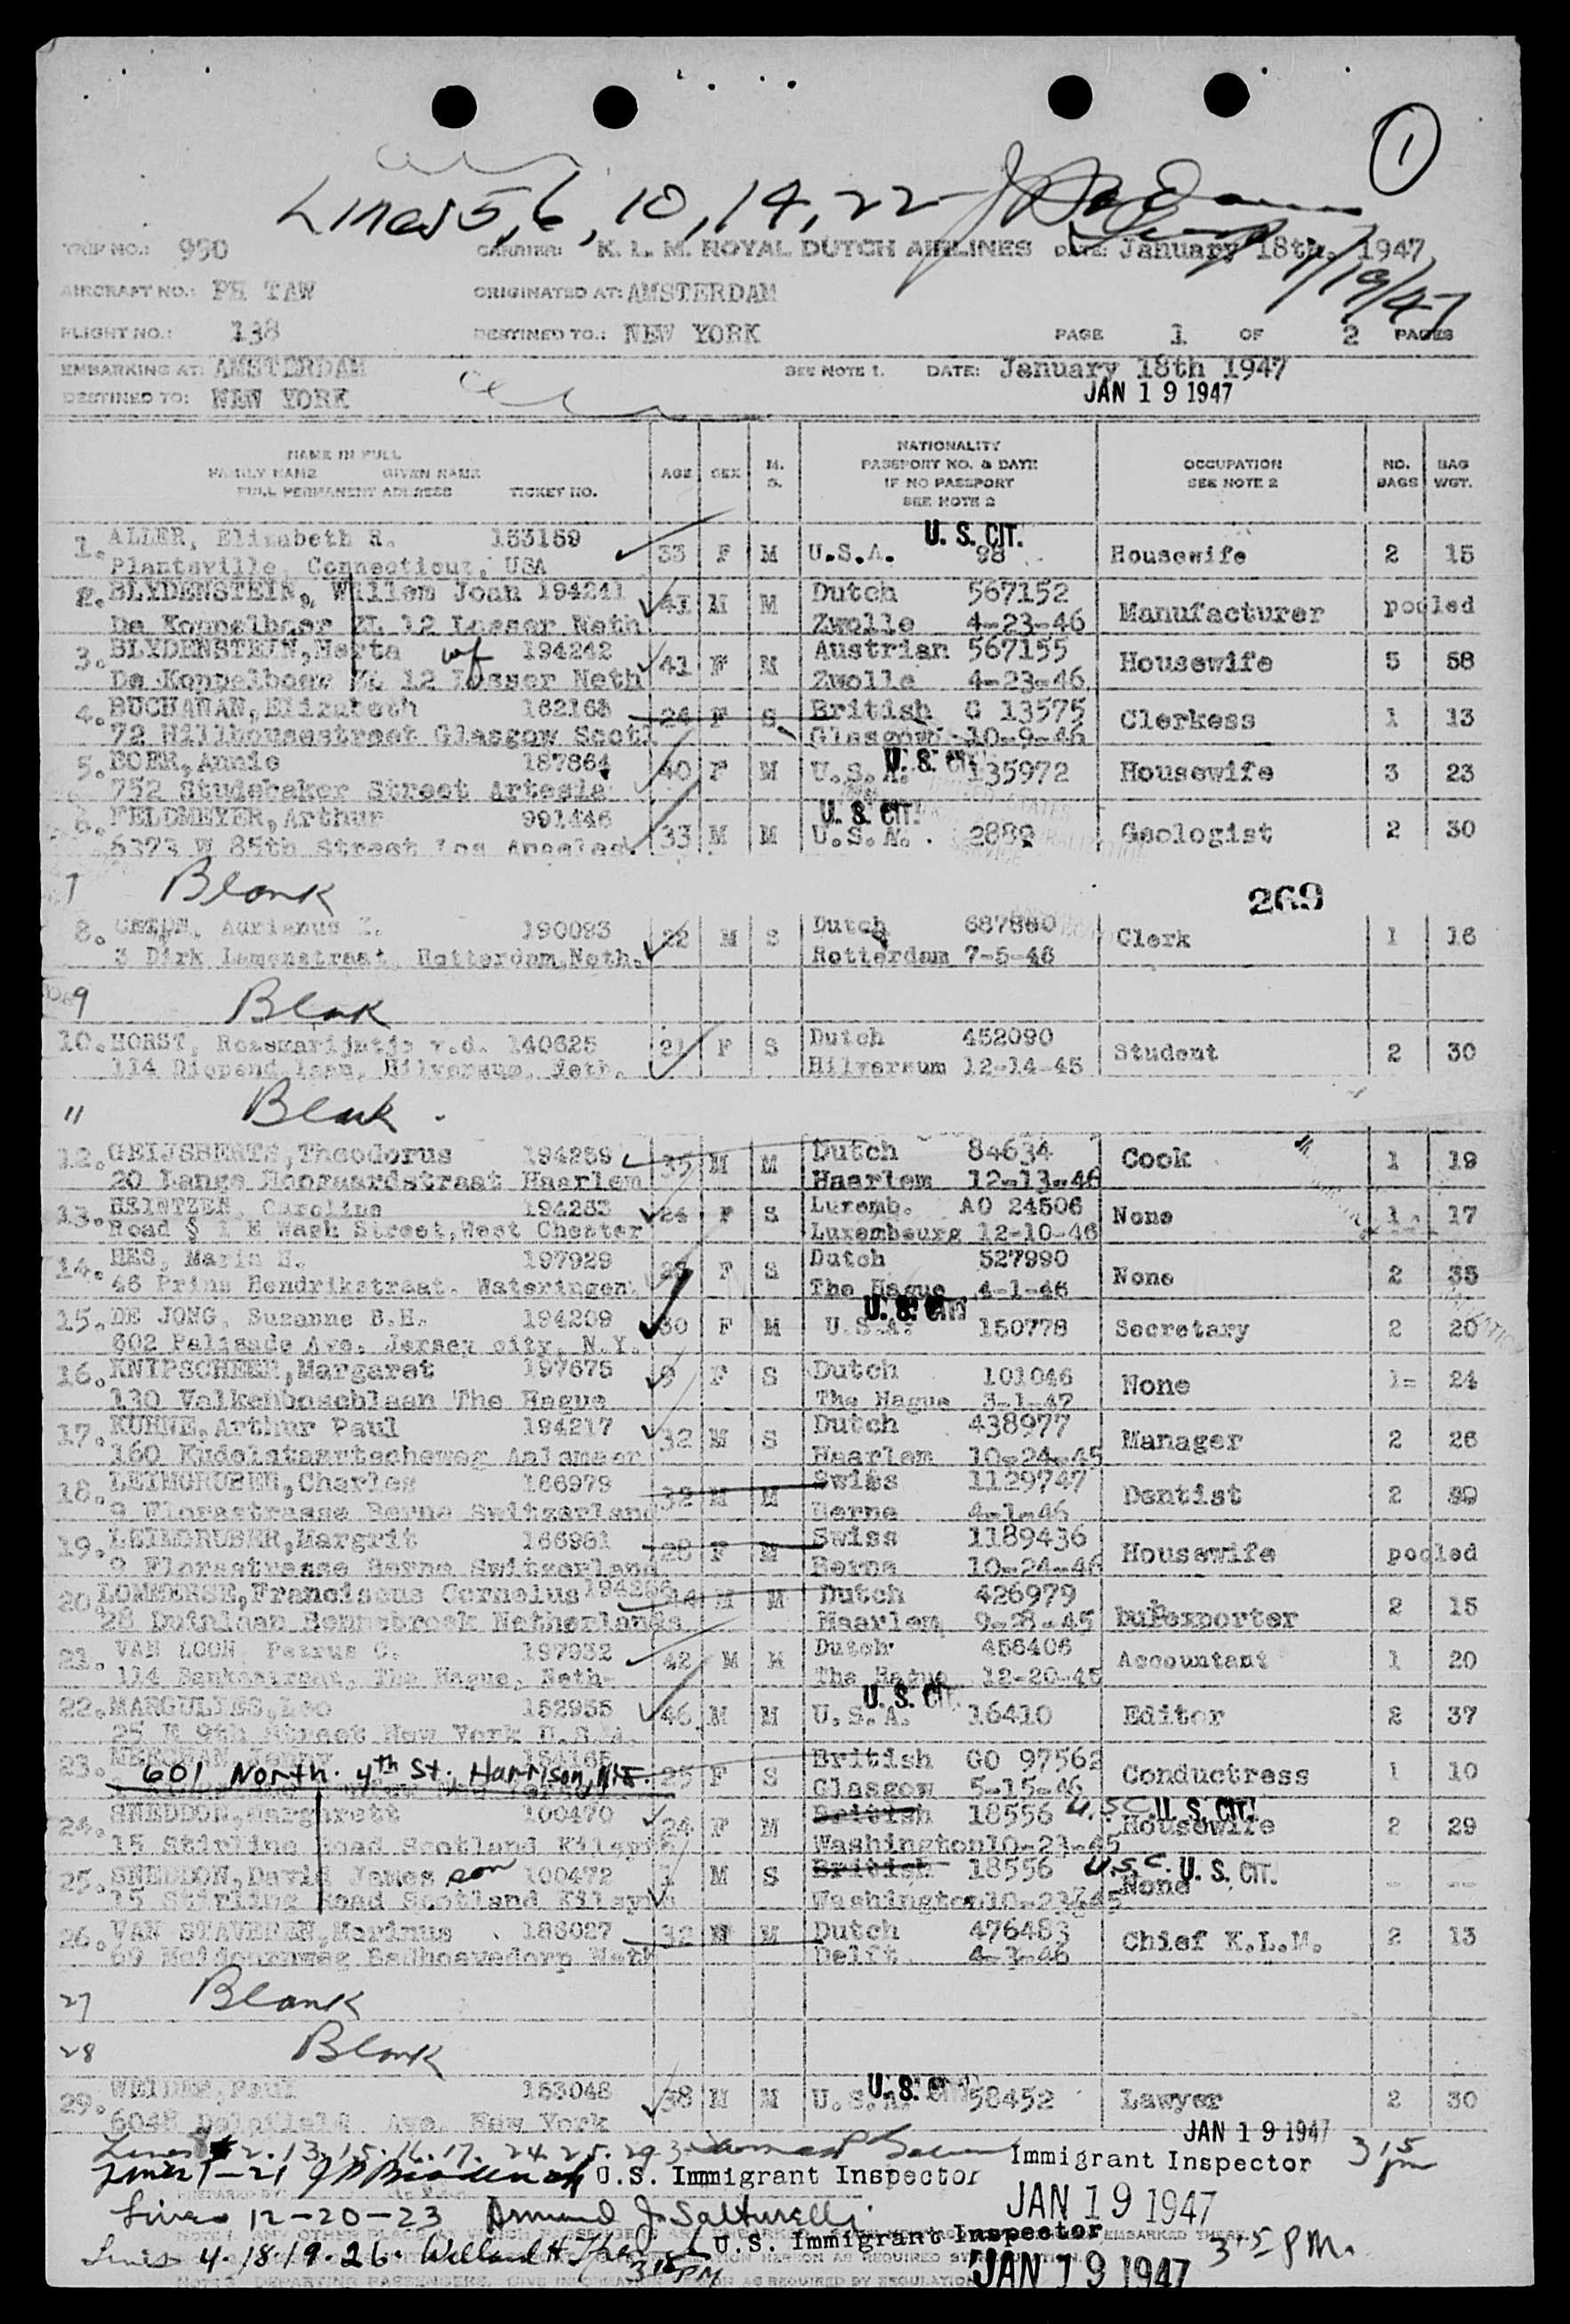 1
Lines 5, 6, 10, 14, 22
1/19/47
TRIP NO.: 990 CARRIER: K. L. M. ROYAL DUTCH AIRLINES DATE: January 18th, 1947
AIRCRAFT NO.: PH TAW ORIGINATED AT: AMSTERDAM
FLIGHT NO.: 138 DESTINED TO.: NEW YORK PAGE 1 OF 2 PAGES
EMBARKING AT: AMSTERDAM SEE NOTE 1. DATE: January 18th 1947
DESTINED TO: NEW YORK JAN 19 1947
NAME IN FULL
FAMILY NAME GIVEN NAME
FULL PERMANENT ADDRESS TICKET NO.
AGE SEX M. S.
NATIONALITY
PASSPORT NO. & DATE
IF NO PASSPORT
SEE NOTE 2
OCCUPATION
SEE NOTE 2
NO. BAGS
BAG WGT.
1. ALLER, Elizabeth R. 153159 33 F M U.S.A. 98 U. S. CIT. Housewife 2 15
Plantsville, Connecticut, USA
2. BLYDENSTEIN, Willem Joan 194241 41 M M Dutch 567152 Manufacturer pooled
De Koppelboer ZL 12 Losser Neth Zwolle 4-23-46
3. BLYDENSTEIN, Herta wf 194242 41 F M Austrian 567155 Housewife 5 58
De Koppelboer ZL 12 Losser Neth Zwolle 4-23-46
4. BUCHANAN, Elizabeth 24 F S British C 13575 Clerkess 1 13
72 Hillhousestreet Glasgow Scotl Glasgow 10-9-46
5. BOER, Annie 187864 40 F M U.S.A. 135972 U. S. CIT. Housewife 3 23
752 Studebaker Street Artesia
6. FELDMEYER, Arthur 991446 33 M M U.S.A. 2889 U. S. CIT. Geologist 2 30
6373 W 85th Street Los Angeles.
7 Blank
269
8. Adrianus 190093 22 M S Dutch Clerk 1 16
3 Dirk Rotterdam, Neth. Rotterdam 7-5-46
9 Blank
10. HORST, Rozemarijntje v.d. 140625 21 F S Dutch 452090 Student 2 30
114 Diependaal laan, Hilversum, Neth. Hilversum 12-14-45
11 Blank
12. GEIJSBERTS, Theodorus 194259 35 M M Dutch 84634 Cook 1 19
20 Lange Hoogaardstraat Haarlem Haarlem 12-13-46
13. HEINTZEN, Caroline 194283 24 F S Luxemb. AO 24506 None 1 17
Road § 1 E Wash Street, West Chester Luxembourg 12-10-46
14. HES, Maria H. 197929 F S Dutch 527990 None 2 35
46 Prins Hendrikstraat. Wateringen. The Hague 4-1-46
15. DE JONG, Suzanne S.H. 194209 30 F M U.S.A. 150778 U. S. CIT. Secretary 2 20
602 Palisade Ave. Jersey city, N.Y.
16. KNIPSCHEER, Margaret 197675 9 F S Dutch 101046 None 1 24
130 Valkenboschlaan The Hague The Hague 3-1-47
17. KUHNE, Arthur Paul 194217 32 M S Dutch 438977 Manager 2 26
160 Kudelstaartscheweg Aalsmeer Haarlem 10-24-45
18. LEIMGRUBER, Charles 166979 32 M M Swiss 1129747 Dentist 2
9 Florastrasse Berne Switzerland Berne 4-1-46
19. LEIMGRUBER, Margrit 166981 28 F M Swiss 1189436 Housewife pooled
9 Florastrasse Berne Switzerland Berne 10-24-46
20. LOMMERSE, Franciscus Cornelus 44 M M Dutch 426979 bulbexporter 2 15
28 Duinlaan Bennebroek Netherlands Haarlem 9-28-45
21. VAN LOON, Petrus C. 197932 42 M M Dutch 456406 Accountant 1 20
114 The Hague, Neth. The Hague 12-20-45
22. MARGULIES, Leo 152955 46 M M U.S.A. 16410 U. S. CIT. Editor 2 37
25 E 9th Street New York U.S.A.
23. 25 F S British GO 97562 Conductress 1 10
601 North. 4th St. Harrison, N.J. Glasgow 5-15-46
24. SNEDDON, Margarett 100470 24 F M British 18556 U.S.C. U. S. CIT. Housewife 2 29
15 Stirling Road Scotland Kilsyth Washington 10-23-45
25. SNEDDON, David James son 100472 1 M S British 18556 U.S.C. U. S. CIT. None -- --
15 Stirling Road Scotland Kilsyth Washington 10-23-45
26. VAN STAVEREN, Marinus 186027 32 M M Dutch 476483 Chief K.L.M. 2 13
69 Meidoornweg Badhoevedorp Neth Delft 4-3-46
27 Blank
28 Blank
29. Paul 153048 38 M M U.S.A. 58452 U. S. CIT. Lawyer 2 30
6048 Delafield Ave. New York
JAN 19 1947
Lines 2. 13. 15. 16. 17. 24. 25. 29 Immigrant Inspector 3 15 pm
Lines 1-21 U.S. Immigrant Inspector
JAN 19 1947
Lines 12-20-23 Armund J. Salturelli
U.S. Immigrant Inspector
Lines 4. 18. 19. 26. 3 15 PM 3 15 P.M.
JAN 19 1947